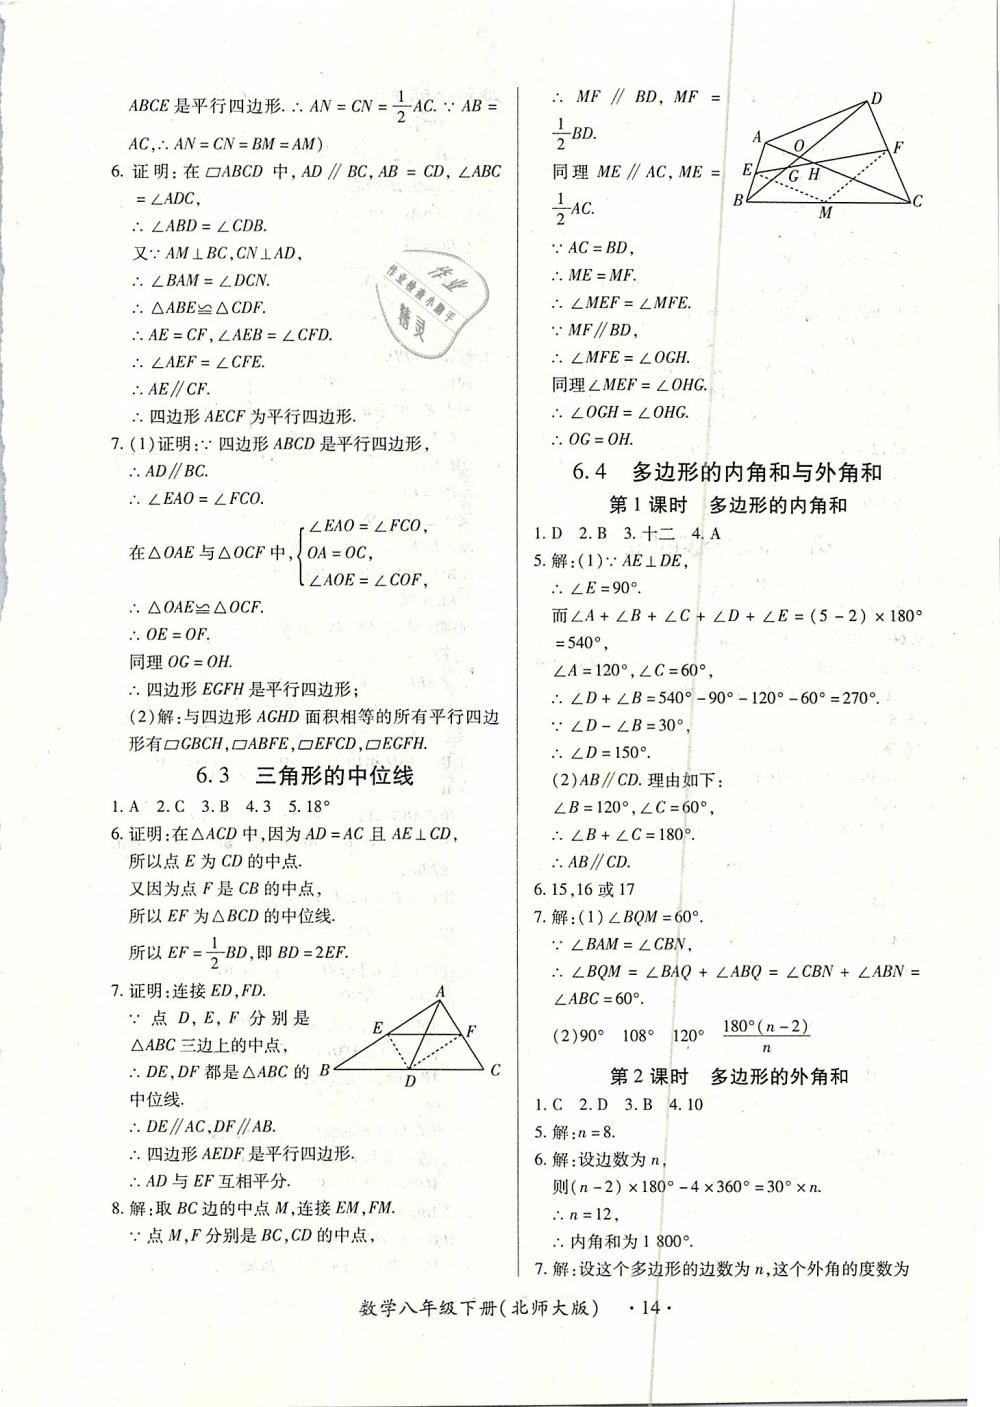 ABCE是平行四边形.∴AN=CN=1/2AC.∵AB=
AC,∴AN=CN=BM=AM)
6.证明:在▱ABCD中,AD∥BC,AB=CD,∠ABC
=∠ADC,
∴∠ABD=∠CDB.
又∵AM⊥BC,CN⊥AD,
∴∠BAM=∠DCN.
∴△ABE≌△CDF.
∴AE=CF,∠AEB=∠CFD.
∴∠AEF=∠CFE.
∴AE∥CF.
∴四边形AECF为平行四边形.
7.(1)证明:∵四边形ABCD是平行四边形,
∴AD∥BC.
∴∠EAO=∠FCO.
在△OAE与△OCF中,{∠EAO=∠FCO,
OA=OC,
∠AOE=∠COF,
∴△OAE≌△OCF.
∴OE=OF.
同理OG=OH.
∴四边形EGFH是平行四边形;
(2)解:与四边形AGHD面积相等的所有平行四边
形有▱GBCH,▱ABFE,▱EFCD,▱EGFH.
6.3 三角形的中位线
1.A 2.C 3.B 4.3 5.18°
6.证明:在△ACD中,因为AD=AC且AE⊥CD,
所以点E为CD的中点.
又因为点F是CB的中点,
所以EF为△BCD的中位线.
所以EF=1/2BD,即BD=2EF.
7.证明:连接ED,FD.
∵点D,E,F分别是
△ABC三边上的中点,
∴DE,DF都是△ABC的
中位线.
∴DE∥AC,DF∥AB.
∴四边形AEDF是平行四边形.
∴AD与EF互相平分.
A
E
F
B
D
C
8.解:取BC边的中点M,连接EM,FM.
∵点M,F分别是BC,CD的中点,
作业
作业检查小助手
精灵
∴MF∥BD,MF=
1/2BD.
同理ME∥AC,ME=
1/2AC.
D
A
O
F
E
G
H
B
M
C
∵AC=BD,
∴ME=MF.
∴∠MEF=∠MFE.
∵MF∥BD,
∴∠MFE=∠OGH.
同理∠MEF=∠OHG.
∴∠OGH=∠OHG.
∴OG=OH.
6.4 多边形的内角和与外角和
第1课时 多边形的内角和
1.D 2.B 3.十二 4.A
5.解:(1)∵AE⊥DE,
∴∠E=90°.
而∠A+∠B+∠C+∠D+∠E=(5-2)×180°
=540°,
∠A=120°,∠C=60°,
∴∠D+∠B=540°-90°-120°-60°=270°.
∵∠D-∠B=30°,
∴∠D=150°.
(2)AB∥CD.理由如下:
∠B=120°,∠C=60°,
∴∠B+∠C=180°.
∴AB∥CD.
6.15,16或17
7.解:(1)∠BQM=60°.
∵∠BAM=∠CBN,
∴∠BQM=∠BAQ+∠ABQ=∠CBN+∠ABN=
∠ABC=60°.
(2)90° 108° 120° 180°(n-2)/n
第2课时 多边形的外角和
1.C 2.D 3.B 4.10
5.解:n=8.
6.解:设边数为n,
则(n-2)×180°-4×360°=30°×n.
∴n=12,
∴内角和为1 800°.
7.解:设这个多边形的边数为n,这个外角的度数为
数学八年级下册(北师大版) ·14·